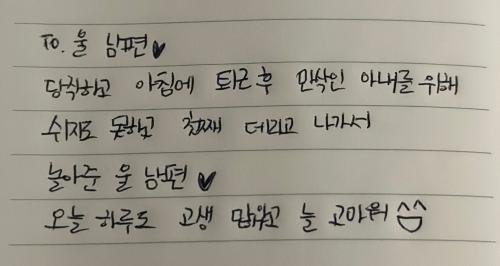 TO. 울 남편♥
당직하고 아침에 퇴근 후 만삭인 아내를 위해
쉬지도 못하고 첫째 데리고 나가서
놀아준 울 남편♥
오늘 하루도 고생 많았고 늘 고마워 ^^